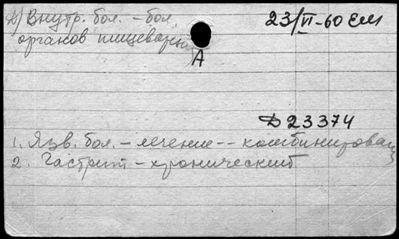 А) Внутр. бол. – бол. 23/VI-60 ем
органов пищеварения
А
Д23374
1. Язв. бол. – лечение -- комбинирован
2. Гастрит – хронический